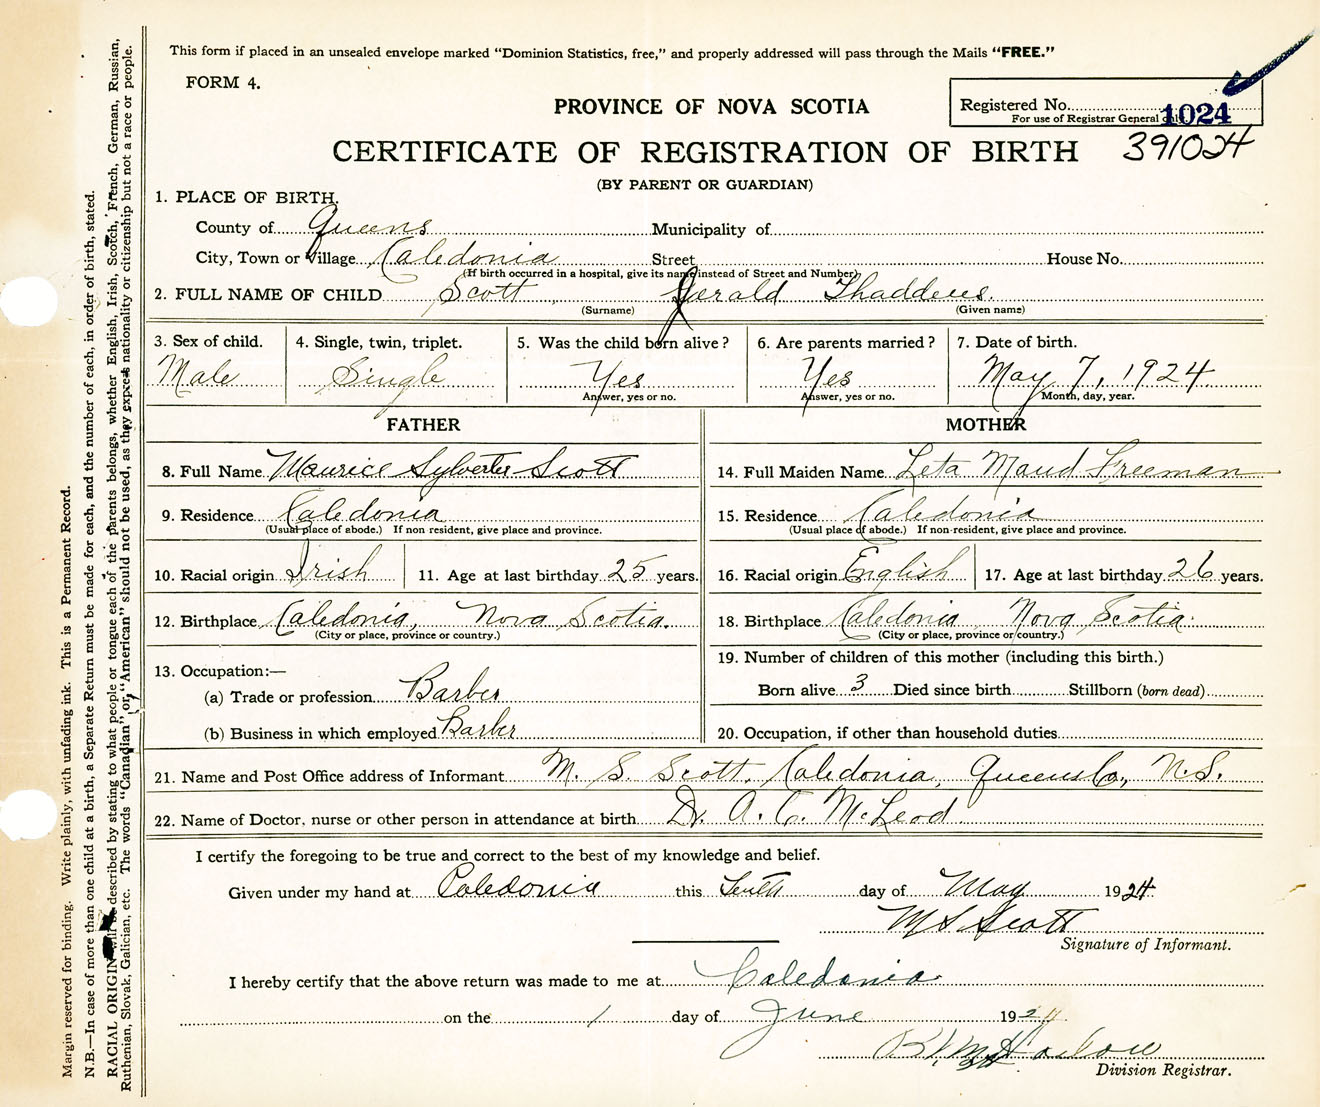 This form if placed in an unsealed envelope marked "Dominion Statistics, free," and properly addressed will pass through the Mails "FREE."
FORM 4.
PROVINCE OF NOVA SCOTIA
Registered No. 1024
For use of Registrar General only.
CERTIFICATE OF REGISTRATION OF BIRTH 391024
(BY PARENT OR GUARDIAN)
1. PLACE OF BIRTH.
County of Queens Municipality of
City, Town or Village Caledonia Street House No.
(If birth occurred in a hospital, give its name instead of Street and Number)
2. FULL NAME OF CHILD Scott Gerald Thaddeus.
(Surname) (Given name)
3. Sex of child. 4. Single, twin, triplet. 5. Was the child born alive? 6. Are parents married? 7. Date of birth.
Male Single Yes Yes May 7, 1924
Answer, yes or no. Answer, yes or no. Month, day, year.
FATHER MOTHER
8. Full Name Maurice Sylvester Scott 14. Full Maiden Name Leta Maud Freeman
9. Residence Caledonia 15. Residence Caledonia
(Usual place of abode.) If non resident, give place and province. (Usual place of abode.) If non-resident, give place and province.
10. Racial origin Irish 11. Age at last birthday 25 years. 16. Racial origin English 17. Age at last birthday 26 years.
12. Birthplace Caledonia, Nova Scotia. 18. Birthplace Caledonia Nova Scotia.
(City or place, province or country.) (City or place, province or country.)
13. Occupation:— 19. Number of children of this mother (including this birth.)
(a) Trade or profession Barber Born alive 3 Died since birth Stillborn (born dead)
(b) Business in which employed Barber 20. Occupation, if other than household duties
21. Name and Post Office address of Informant M. S. Scott, Caledonia, Queens Co., N.S.
22. Name of Doctor, nurse or other person in attendance at birth Dr. A. C. McLeod
I certify the foregoing to be true and correct to the best of my knowledge and belief.
Given under my hand at Caledonia this Tenth day of May 1924
M S Scott
Signature of Informant.
I hereby certify that the above return was made to me at Caledonia
on the 1 day of June 1924
Harlow
Division Registrar.
Margin reserved for binding. Write plainly, with unfading ink. This is a Permanent Record.
N.B.—In case of more than one child at a birth, a Separate Return must be made for each, and the number of each, in order of birth, stated.
RACIAL ORIGIN will be described by stating to what people or tongue each of the parents belongs, whether English, Irish, Scotch, French, German, Russian,
Ruthenian, Slovak, Galician, etc. The words "Canadian" or "American" should not be used, as they express nationality or citizenship but not a race or people.